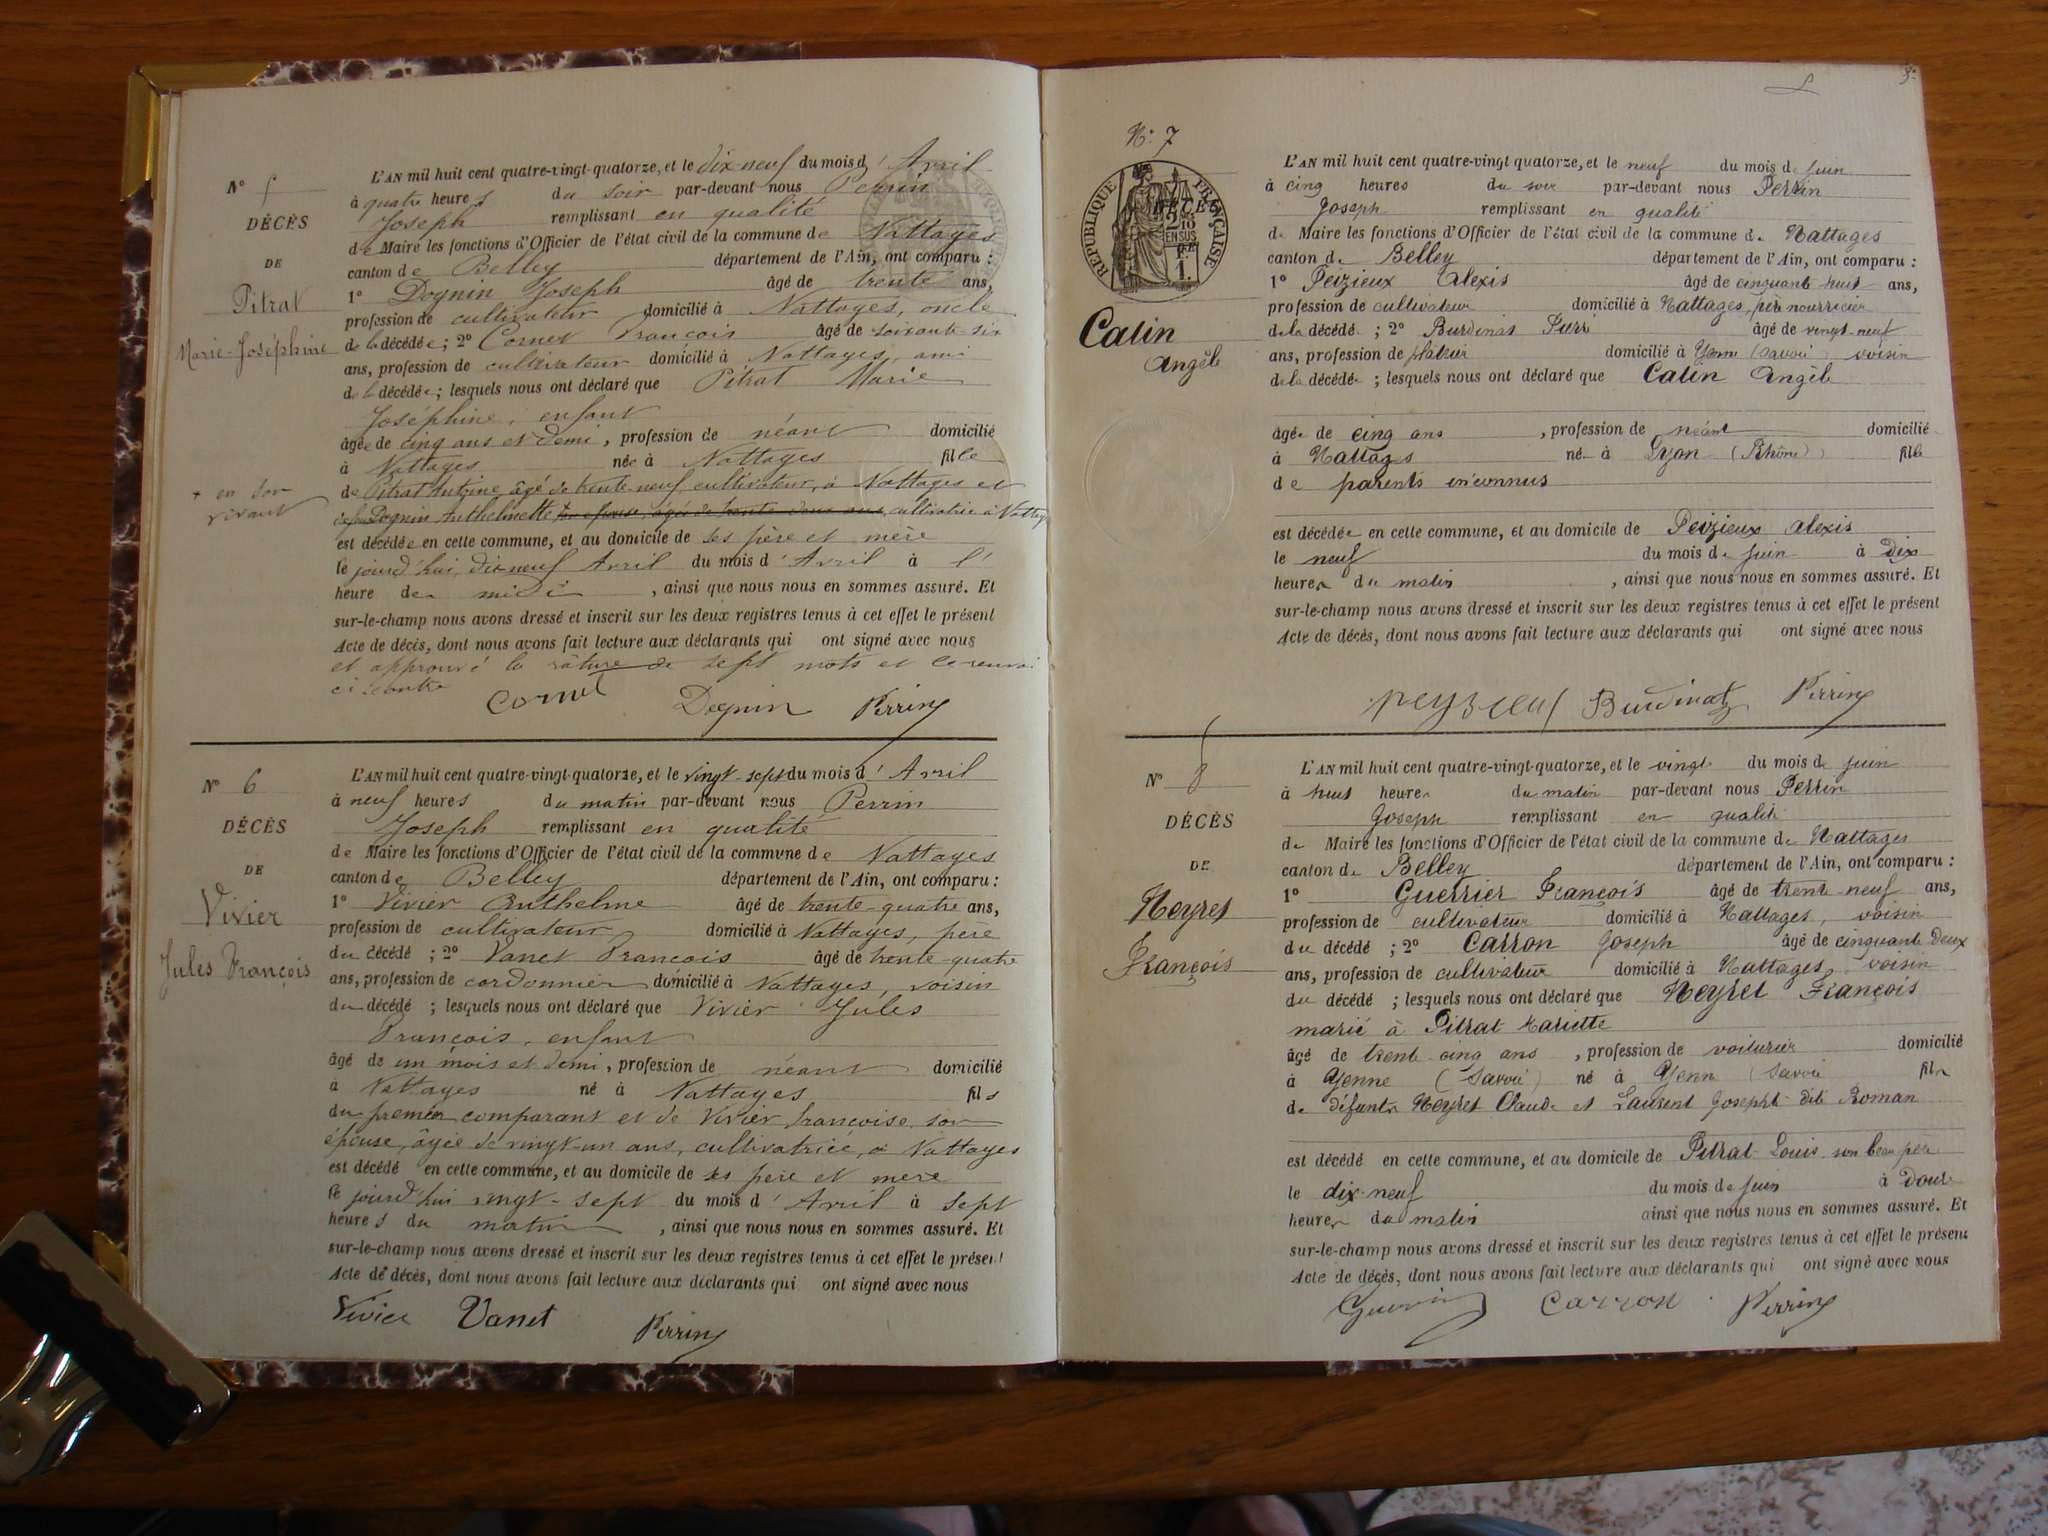 N° 5
DÉCÈS
DE
Pitrat
Marie-Joséphine
+ en son
vivant
L'AN mil huit cent quatre-vingt-quatorze, et le dix-neuf du mois d'Avril
à quatre heures du soir par-devant nous Perrin
Joseph remplissant en qualité
de Maire les fonctions d'Officier de l'état civil de la commune de Nattages
canton de Belley département de l'Ain, ont comparu :
1° Dognin Joseph âgé de trente ans,
profession de cultivateur domicilié à Nattages, oncle
de la décédée ; 2° Cornet François âgé de soixante-six
ans, profession de cultivateur domicilié à Nattages, ami
de la décédée ; lesquels nous ont déclaré que Pitrat Marie
Joséphine, enfant
âgée de cinq ans et demi, profession de néant domicilié
à Nattages née à Nattages fille
de Pitrat Antoine, âgé de trente-neuf, cultivateur, à Nattages et
Dognin Anthelmette son épouse, âgée de trente deux ans, cultivatrice à Nattages
est décédée en cette commune, et au domicile de ses père et mère
le jourd'hui dix-neuf Avril du mois d'Avril à l'
heure de midi, ainsi que nous nous en sommes assuré. Et
sur-le-champ nous avons dressé et inscrit sur les deux registres tenus à cet effet le présent
Acte de décès, dont nous avons fait lecture aux déclarants qui ont signé avec nous
et approuvé la râture de sept mots et le renvoi
ci contre
Cornet Dognin Perrin
N° 6
DÉCÈS
DE
Vivier
Jules François
L'AN mil huit cent quatre-vingt-quatorze, et le vingt-sept du mois d'Avril
à neuf heures du matin par-devant nous Perrin
Joseph remplissant en qualité
de Maire les fonctions d'Officier de l'état civil de la commune de Nattages
canton de Belley département de l'Ain, ont comparu :
1° Vivier Anthelme âgé de trente-quatre ans,
profession de cultivateur domicilié à Nattages, père
du décédé ; 2° Vanet François âgé de trente-quatre
ans, profession de cordonnier domicilié à Nattages, voisin
du décédé ; lesquels nous ont déclaré que Vivier Jules
François, enfant
âgé de un mois et demi, profession de néant domicilié
à Nattages né à Nattages fils
du premier comparant et de Vivier Françoise son
épouse, âgée de vingt-un ans, cultivatrice, à Nattages
est décédé en cette commune, et au domicile de ses père et mère
le jourd'hui vingt-sept du mois d'Avril à sept
heures du matin, ainsi que nous nous en sommes assuré. Et
sur-le-champ nous avons dressé et inscrit sur les deux registres tenus à cet effet le présent
Acte de décès, dont nous avons fait lecture aux déclarants qui ont signé avec nous
Vivier Vanet Perrin
N° 7
RÉPUBLIQUE FRANÇAISE
2/10
EN SUS
1.
Catin
Angèle
L'AN mil huit cent quatre-vingt quatorze, et le neuf du mois de juin
à cinq heures du soir par-devant nous Perrin
Joseph remplissant en qualité
de Maire les fonctions d'Officier de l'état civil de la commune de Nattages
canton de Belley département de l'Ain, ont comparu :
1° Peizieux Alexis âgé de cinquant huit ans,
profession de cultivateur domicilié à Nattages, père nourricier
de la décédé ; 2° Burdinat Pierre âgé de vingt-neuf
ans, profession de platrier domicilié à Yenne (Savoie) voisin
de la décédée ; lesquels nous ont déclaré que Catin Angèle
âgée de cinq ans, profession de néant domicilié
à Nattages né à Lyon (Rhône) fille
de parents inconnus
est décédée en cette commune, et au domicile de Peizieux Alexis
le neuf du mois de juin à dix
heures du matin, ainsi que nous nous en sommes assuré. Et
sur-le-champ nous avons dressé et inscrit sur les deux registres tenus à cet effet le présent
Acte de décès, dont nous avons fait lecture aux déclarants qui ont signé avec nous
Burdinat Perrin
N° 8
DÉCÈS
DE
Neyret
François
L'AN mil huit cent quatre-vingt-quatorze, et le vingt du mois de juin
à huit heures du matin par-devant nous Perrin
Joseph remplissant en qualité
de Maire les fonctions d'Officier de l'état civil de la commune de Nattages
canton de Belley département de l'Ain, ont comparu :
1° Guerrier François âgé de trente-neuf ans,
profession de cultivateur domicilié à Nattages, voisin
du décédé ; 2° Carron Joseph âgé de cinquante deux
ans, profession de cultivateur domicilié à Nattages, voisin
du décédé ; lesquels nous ont déclaré que Neyret François
marié à Pitrat Mariette
âgé de trente cinq ans, profession de voiturier domicilié
à Yenne (Savoie) né à Yenne (Savoie fils
de défunts Neyret Claude et Laurent Josephte dite Roman
est décédé en cette commune, et au domicile de Pitrat Louis son beau père
le dix-neuf du mois de juin à douze
heures du matin ainsi que nous nous en sommes assuré. Et
sur-le-champ nous avons dressé et inscrit sur les deux registres tenus à cet effet le présent
Acte de décès, dont nous avons fait lecture aux déclarants qui ont signé avec nous
Carron Perrin